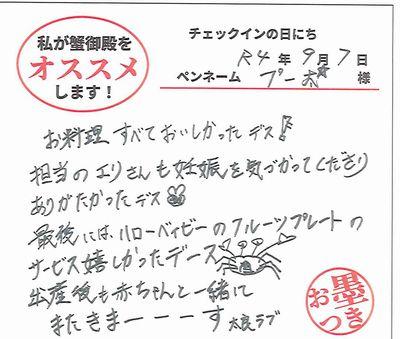 私が蟹御殿を
オススメ
します！
チェックインの日にち
R4 年 9 月 7 日
ペンネーム プー太 様
お料理 すべておいしかったデス！
担当のエリさんも妊娠を気づかってくださり
ありがたかったデス
最後には、ハローベイビーのフルーツプレートの
サービス嬉しかったデース
出産後も赤ちゃんと一緒に
またきまーーーす 太良ラブ
お墨つき